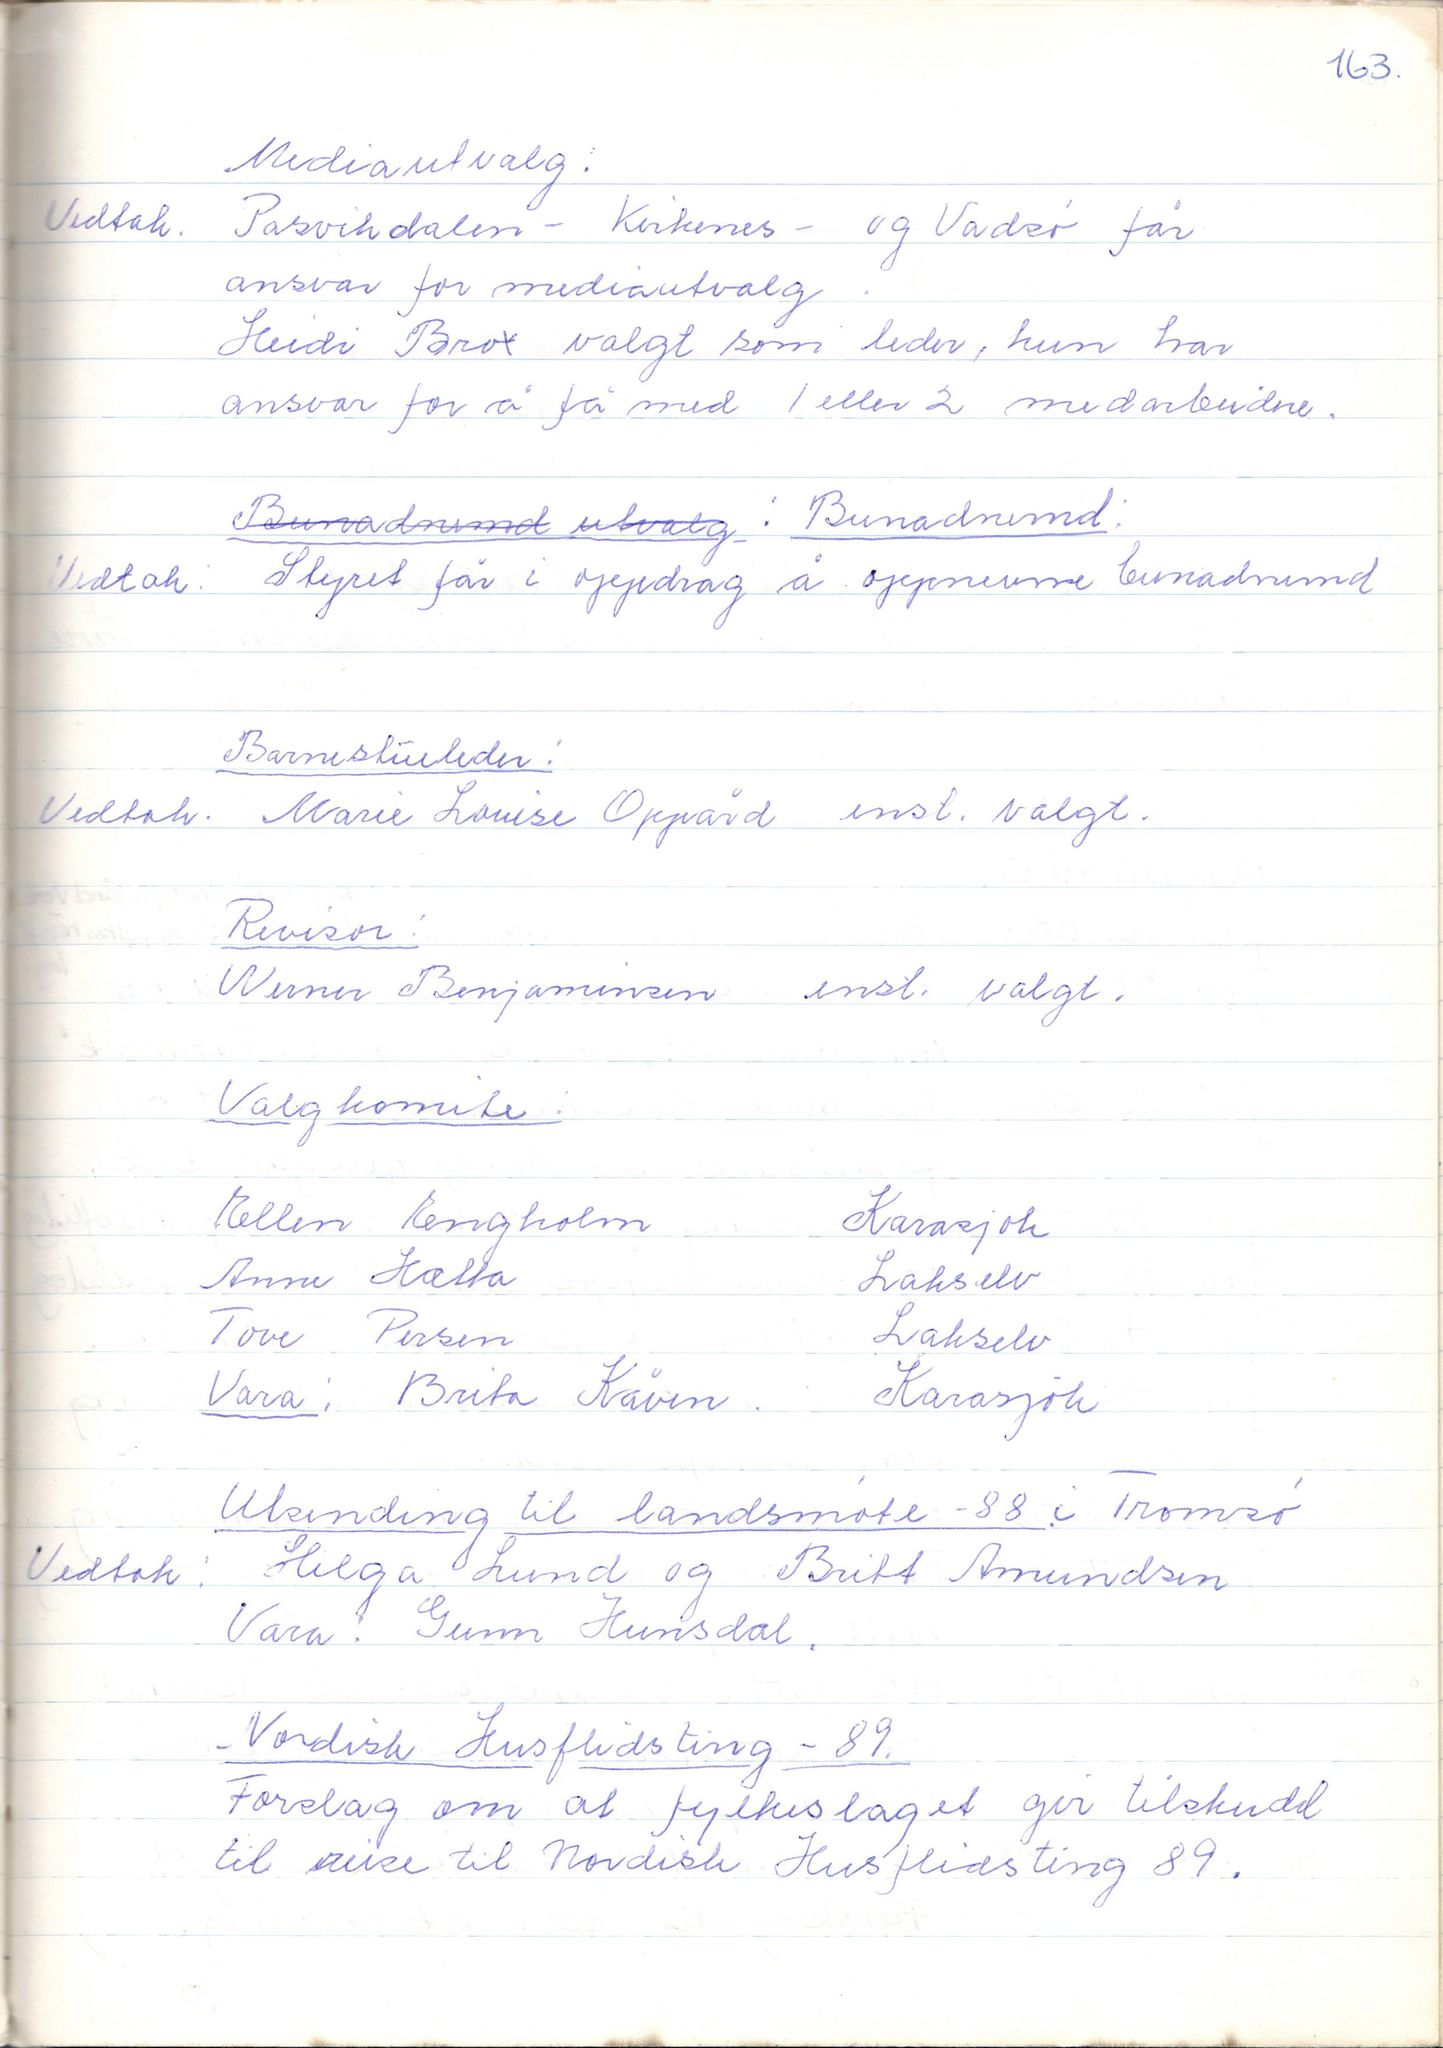 163.
Mediautvalg:
Vedtak. Pasvikdalen - Kirkenes - og Vadsø får
ansvar for mediautvalg.
Heidi Brox valgt som leder, hun har
ansvar for å få med 1 eller 2 medarbeidere.
Bunadnemd utvalg: Bunadnemd:
Vedtak: Styret får i oppdrag å oppnevne bunadnemd
Barnestueleder:
Vedtak. Marie Louise Oppård enst. valgt.
Revisor:
Werner Benjaminsen enst. valgt.
Valgkomite:
Ellen Engholm Karasjok
Anne Hætta Lakselv
Tove Persen Lakselv
Vara: Brita Kåven. Karasjok
Utsending til landsmøte -88 i Tromsø
Vedtak: Helga Lund og Britt Amundsen
Vara: Gunn Hunsdal.
Nordisk Husflidsting - 89.
Forslag om at fylkeslaget gir tilskudd
til reise til Nordisk Husflidsting 89.